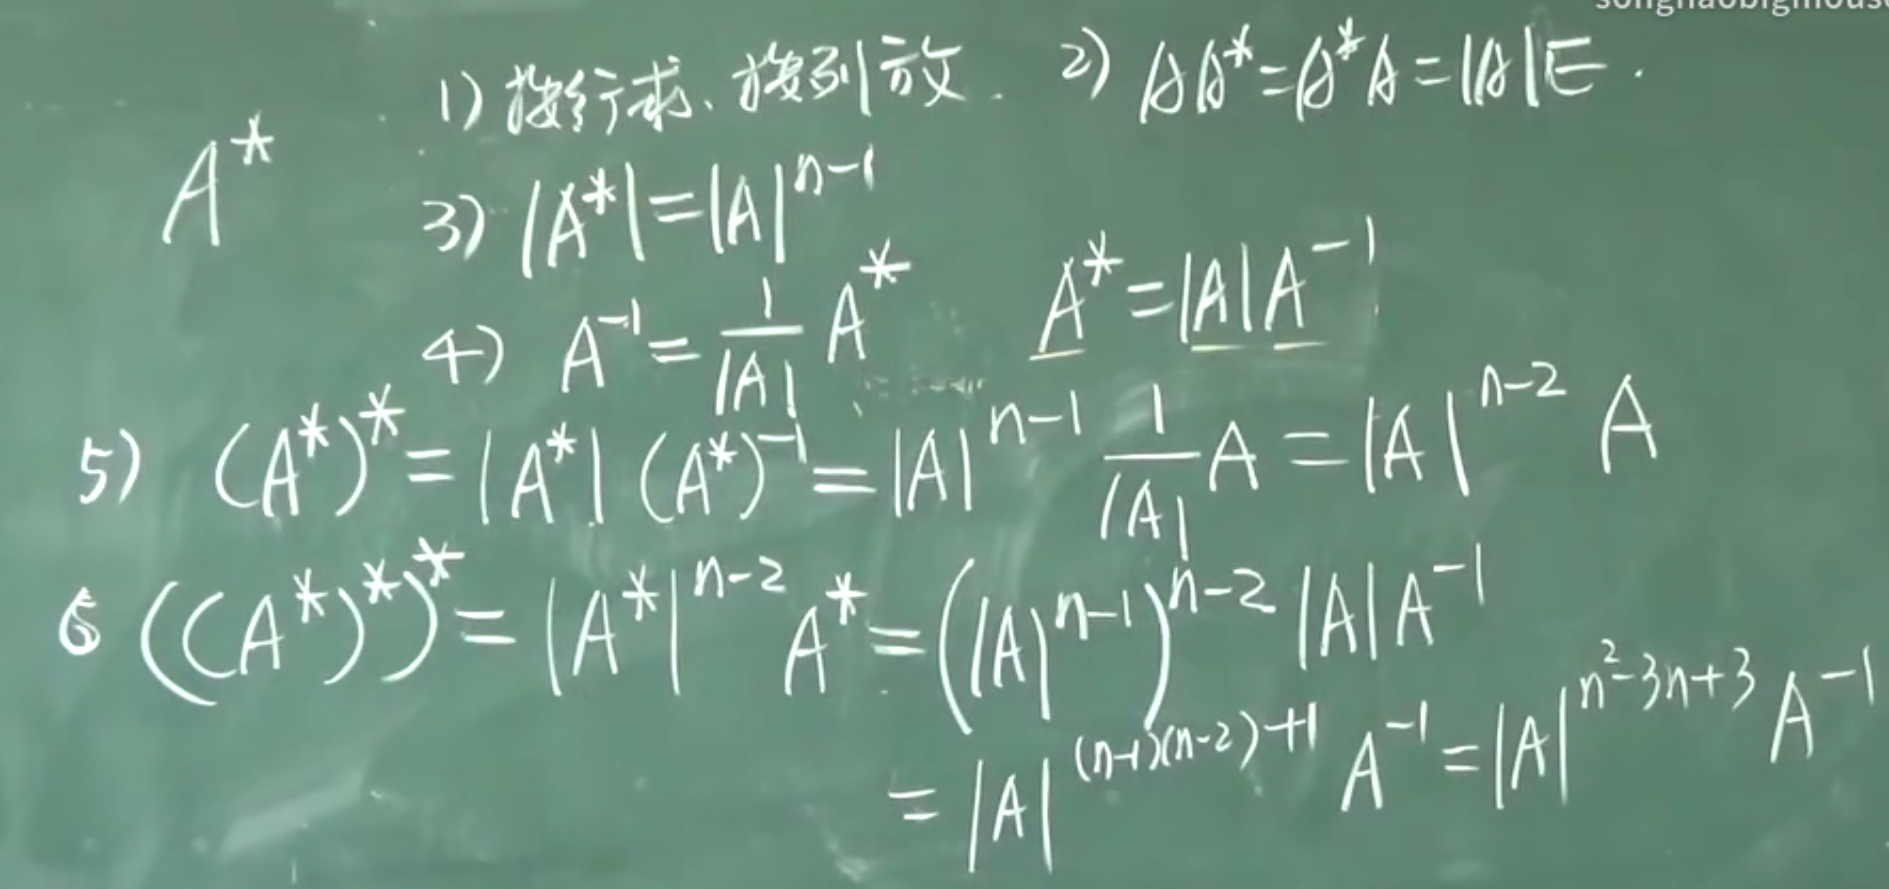 1) 按行求、按列放. 2) AA* = A*A = |A|E.
A*
3) |A*| = |A|^{n-1}
4) A^{-1} = \frac{1}{|A|} A* A* = |A| A^{-1}
5) (A*)* = |A*| (A*)^{-1} = |A|^{n-1} \frac{1}{|A|} A = |A|^{n-2} A
6 ((A*)*)* = |A*|^{n-2} A* = (|A|^{n-1})^{n-2} |A| A^{-1}
= |A|^{(n-1)(n-2)+1} A^{-1} = |A|^{n^2-3n+3} A^{-1}